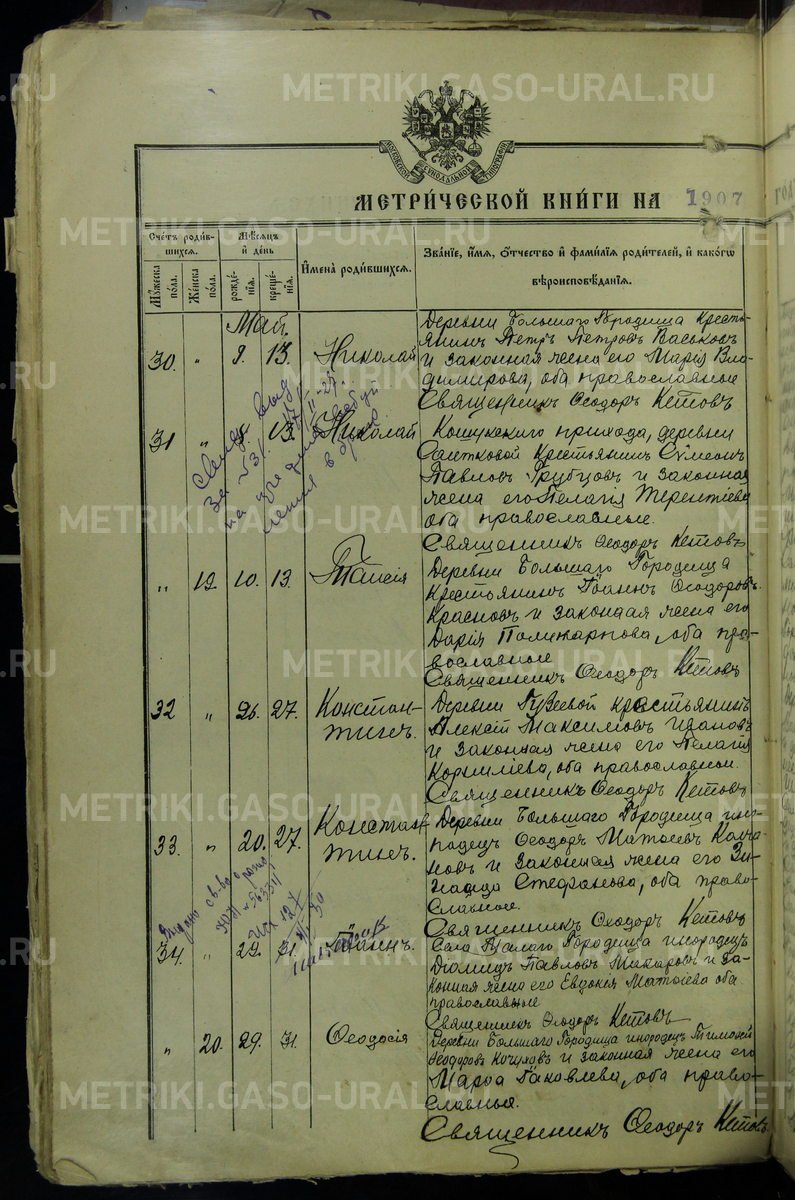 METRIKI.GASO-URAL.RU
МОСКОВСКОЙ СѴНОДАЛЬНОЙ ТИПОГРАФІИ
МЕТРИ́ЧЕСКОЙ КНИ́ГИ НА 1907
Сче́тъ роди́в-
шихсѧ.
Мѣ́сѧцъ
и҆ де́нь
Мꙋ́жеска
по́ла.
Же́нска
по́ла.
рожде́-
нїѧ.
креще́-
нїѧ.
И҆мена̀ роди́вшихсѧ.
Зва́нїе, и҆́мѧ, ѻ҆́тчество и҆ фами́лїѧ роди́телей, и҆ како́гѡ
вѣроисповѣ́данїѧ.
Май.
30. " 9. 13. Николай
Деревни Большаго Городища кресть-
янинъ Петръ Петровъ Васьковъ
и законная жена его Марія Вла-
димирова, оба православные
Священникъ Ѳеодоръ Кетовъ
31 " 13. Николай
Кошукскаго прихода, деревни
крестьянинъ Сѵмеонъ
Павловъ Грубцовъ и законная
жена его Пелагія Терентіева
оба православные.
Священникъ Ѳеодоръ Кетовъ
" 19. 10. 13. Таисія
Деревни Большаго Городища
крестьянинъ Іоаннъ Ѳеодоровъ
Красновъ и законная жена его
Дарія Поликарпова, оба пра-
вославные
Священникъ Ѳеодоръ Кетовъ
32 " 26. 27. Констан-
тинъ.
Деревни Гузеевой крестьянинъ
Алексій Максимовъ Ивановъ
и законная жена его Пелагія
Корниліева, оба православные.
Священникъ Ѳеодоръ Кетовъ
33. " 20. 27. Констан-
тинъ.
Деревни Большаго Городища ино-
родецъ Ѳеодоръ Матѳіевъ
и законная жена его Зи-
наида Стефанова, оба право-
славные.
Священникъ Ѳеодоръ Кетовъ
34. " 29. 31. Іоаннъ.
Села Малаго Городища инородецъ
Павловъ Макаровъ и за-
конная жена его Евдокія Матѳіева оба
православные
Священникъ Ѳеодоръ Кетовъ
" 20. 29. 31. Ѳеодосія
Деревни Большаго Городища инородецъ Тимоѳей
Ѳеодоровъ Кочуховъ и законная жена его
Марѳа Іаковлева, оба право-
славные.
Священникъ Ѳеодоръ Кетовъ